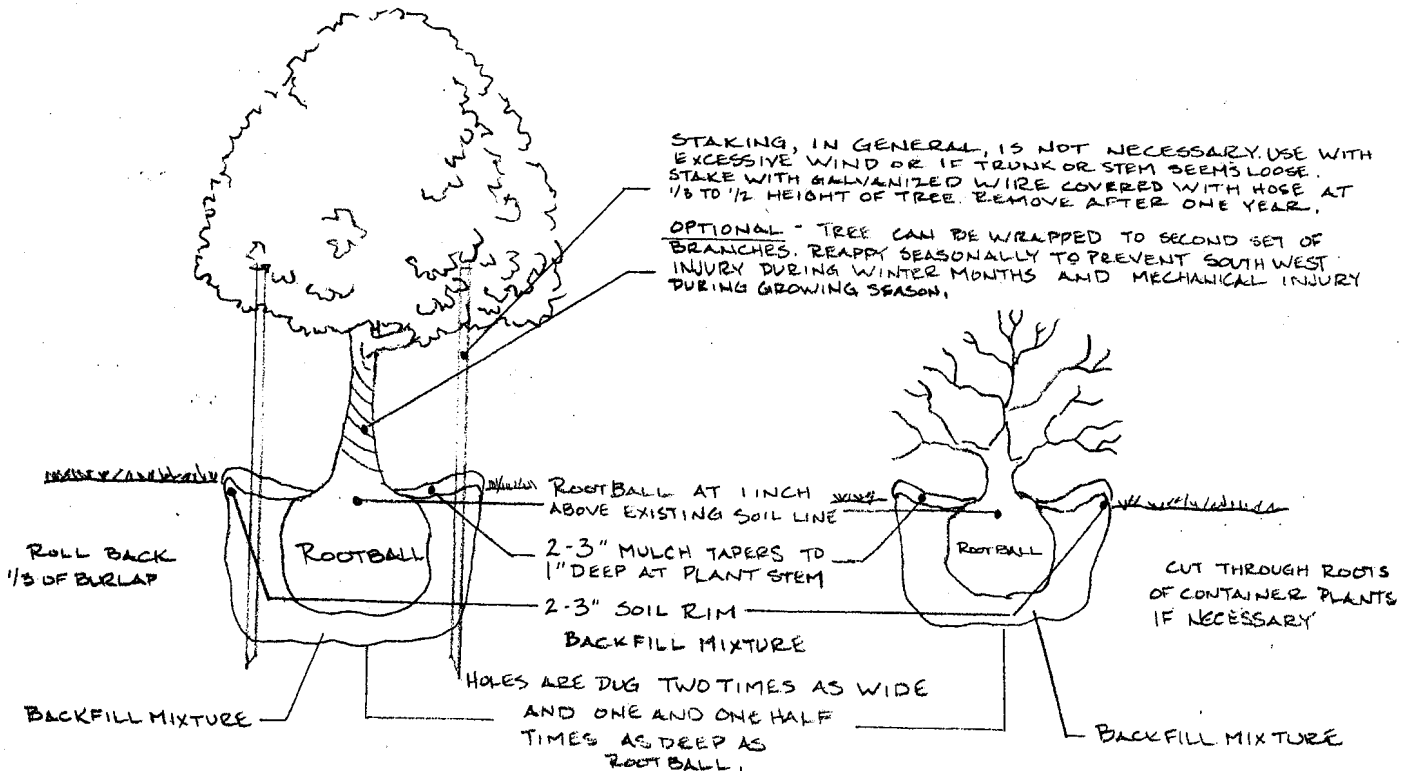 STAKING, IN GENERAL, IS NOT NECESSARY. USE WITH
EXCESSIVE WIND OR IF TRUNK OR STEM SEEMS LOOSE.
STAKE WITH GALVANIZED WIRE COVERED WITH HOSE AT
1/3 TO 1/2 HEIGHT OF TREE. REMOVE AFTER ONE YEAR.
OPTIONAL - TREE CAN BE WRAPPED TO SECOND SET OF
BRANCHES. REAPPY SEASONALLY TO PREVENT SOUTH WEST
INJURY DURING WINTER MONTHS AND MECHANICAL INJURY
DURING GROWING SEASON.
ROOTBALL AT 1 INCH
ABOVE EXISTING SOIL LINE
ROLL BACK
1/3 OF BURLAP
ROOTBALL
2-3" MULCH TAPERS TO
1" DEEP AT PLANT STEM
ROOTBALL
2-3" SOIL RIM
CUT THROUGH ROOTS
OF CONTAINER PLANTS
IF NECESSARY
BACKFILL MIXTURE
HOLES ARE DUG TWO TIMES AS WIDE
AND ONE AND ONE HALF
TIMES AS DEEP AS
ROOTBALL.
BACKFILL MIXTURE
BACKFILL MIXTURE